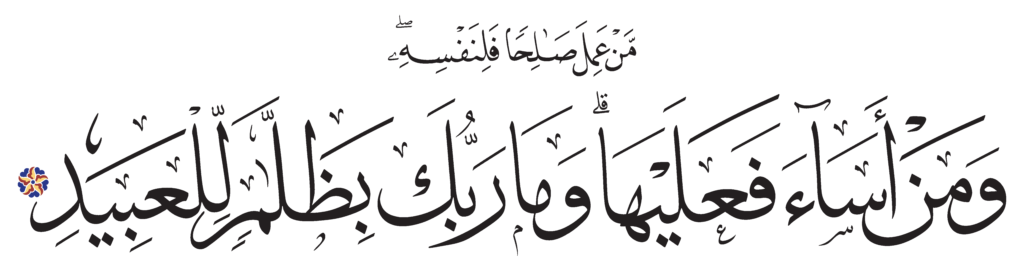 مَّنْ عَمِلَ صَـٰلِحًا فَلِنَفْسِهِۦ ۖ
وَمَنْ أَسَآءَ فَعَلَيْهَا ۗ وَمَا رَبُّكَ بِظَلَّـٰمٍ لِّلْعَبِيدِ